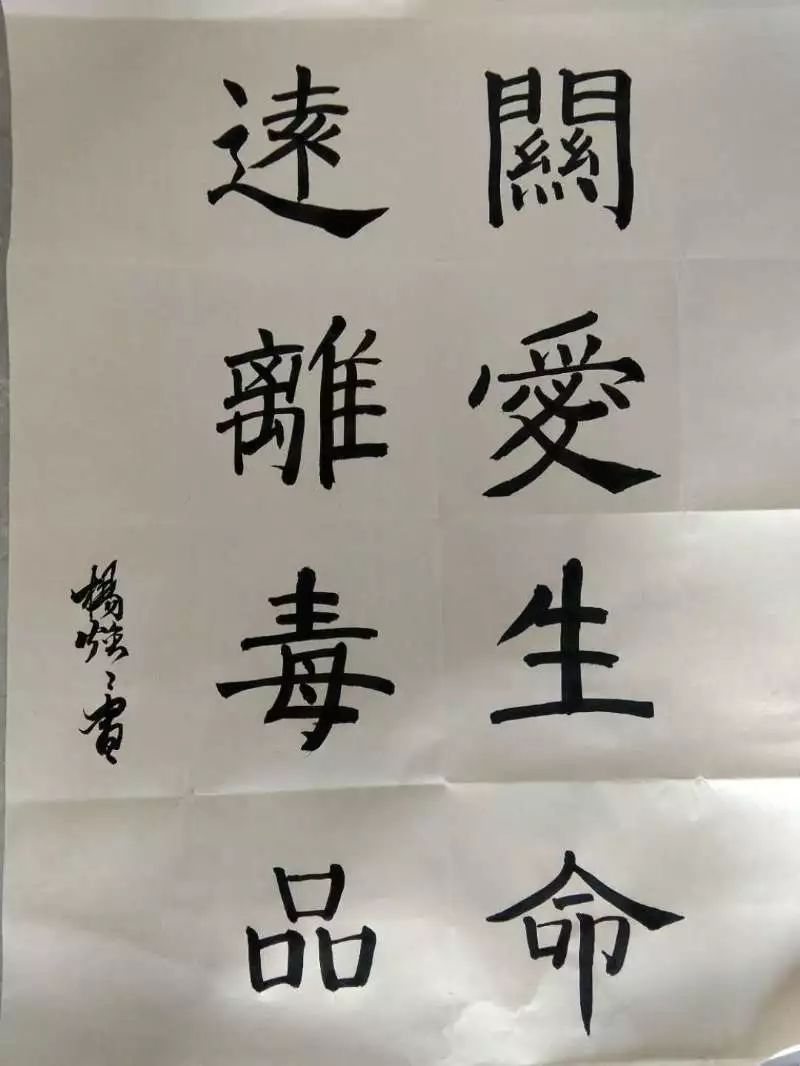 關愛生命
遠離毒品
楊